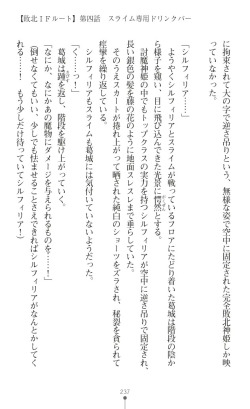 【敗北IFルート】第四話　スライム専用ドリンクバー
に拘束されて大の字で逆さ吊りという、無様な姿で空中に固定された完全敗北神姫しか映
っていなかった。
「シルフィリア……」
ようやくシルフィリアとスライムが戦っているフロアにたどり着いた葛城は階段の陰か
ら様子を窺い、目に飛び込んできた光景に愕然とする。
討魔神姫の中でもトップクラスの実力を持つシルフィリアが空中に逆さ吊りで固定され、
長い銀色の髪を藤の花のように地面スレスレまで垂らしている。
そのうえスカートが捲れ上がって晒された純白のショーツをズラされ、秘裂を貪られて
痙攣を繰り返している。
シルフィリアもスライムも葛城には気付いていないようだった。
葛城は踵を返し、階段を駆け上がっていく。
（なにか、なにかあの魔物にダメージを与えられるものを……）
（倒せなくてもいい、少しでも怯ませることさえできればシルフィリアがなんとかしてく
れる……！　もう少しだけ待っていてくれシルフィリア！）
237